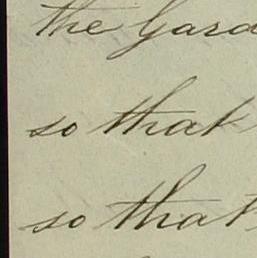 the Gard
so that
so that